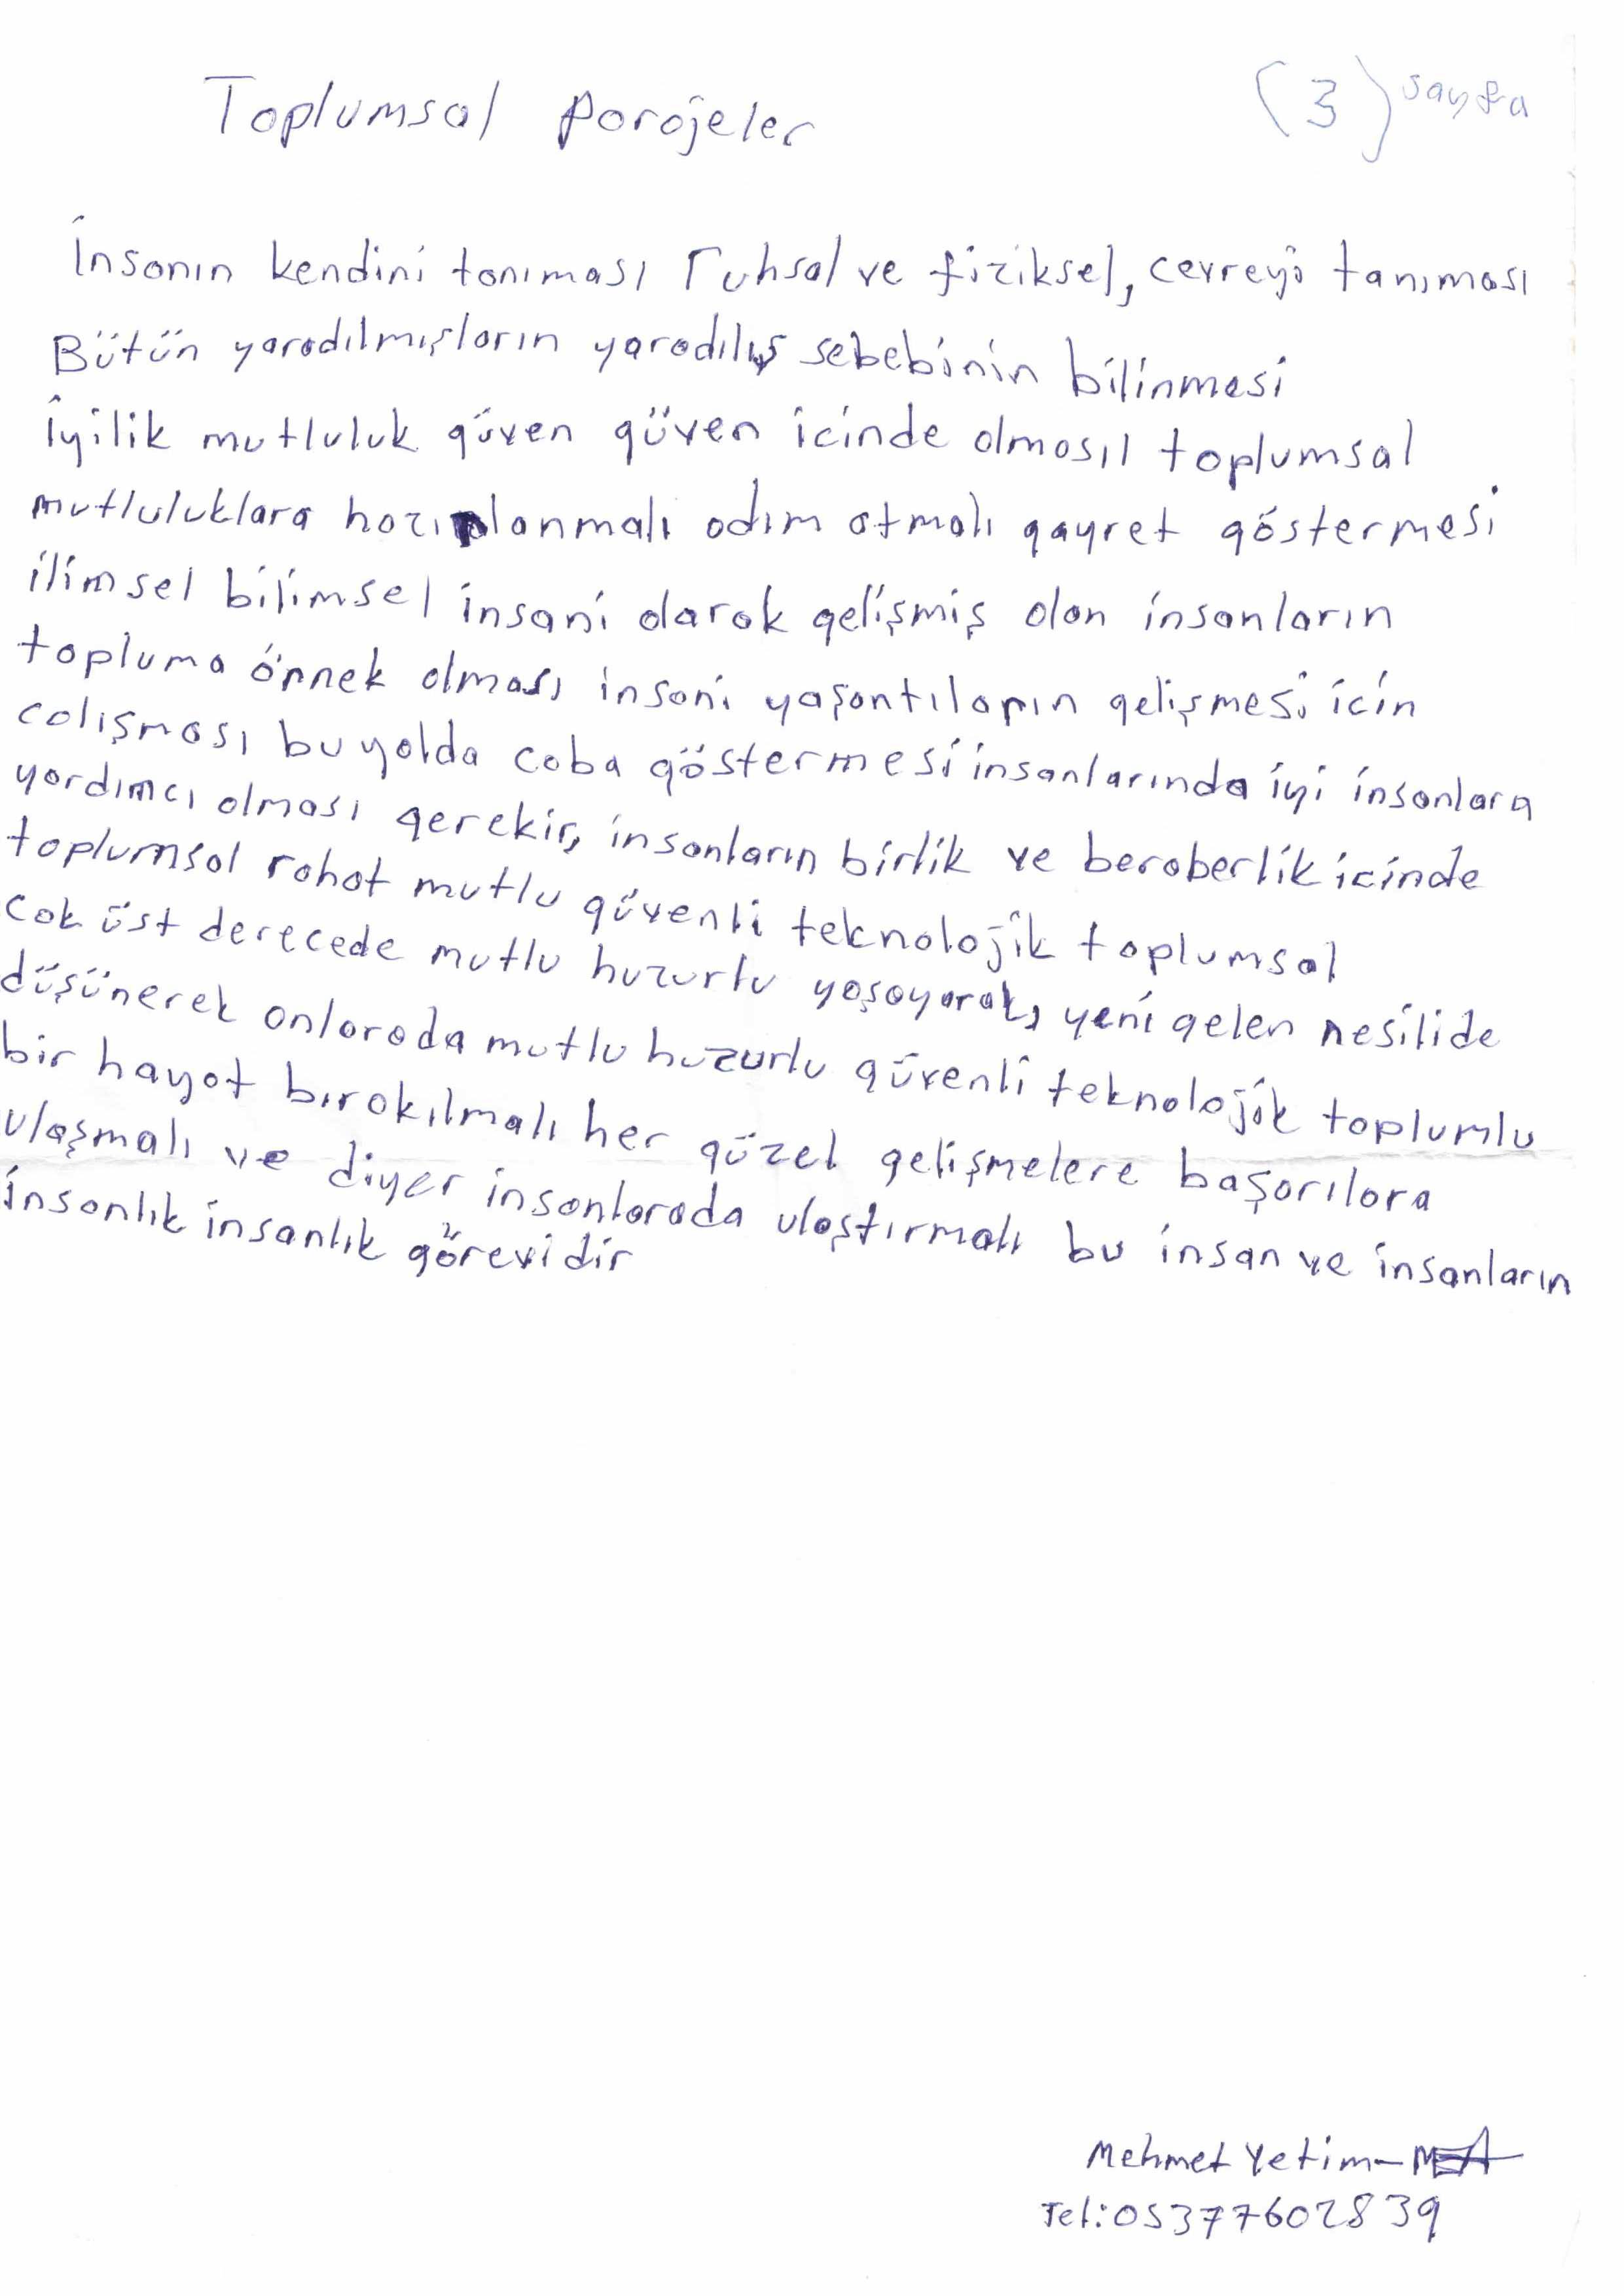 Toplumsal porojeler
(3) sayfa
İnsanın kendini tanıması ruhsal ve fiziksel, cevreyi tanıması
Bütün yaradılmışların yaradılış sebebinin bilinmesi
iyilik mutluluk güven güven icinde olmasıl toplumsal
mutluluklara hazırlanmalı adım atmalı gayret göstermesi
ilimsel bilimsel insani olarak gelişmiş olan insanların
topluma örnek olması insani yaşantıların gelişmesi icin
calışması bu yolda caba göstermesi insanlarında iyi insanlara
yardımcı olması gerekir, insanların birlik ve beraberlik icinde
toplumsal rahat mutlu güvenli teknolojik toplumsal
cok üst derecede mutlu huzurlu yaşayarak, yeni gelen nesilide
düşünerek onlarada mutlu huzurlu güvenli teknolojik toplumlu
bir hayat bırakılmalı her güzel gelişmelere başarılara
ulaşmalı ve diyer insanlarada ulaştırmalı bu insan ve insanların
insanlık insanlık görevidir
Mehmet Yetim-
Tel:05377602839